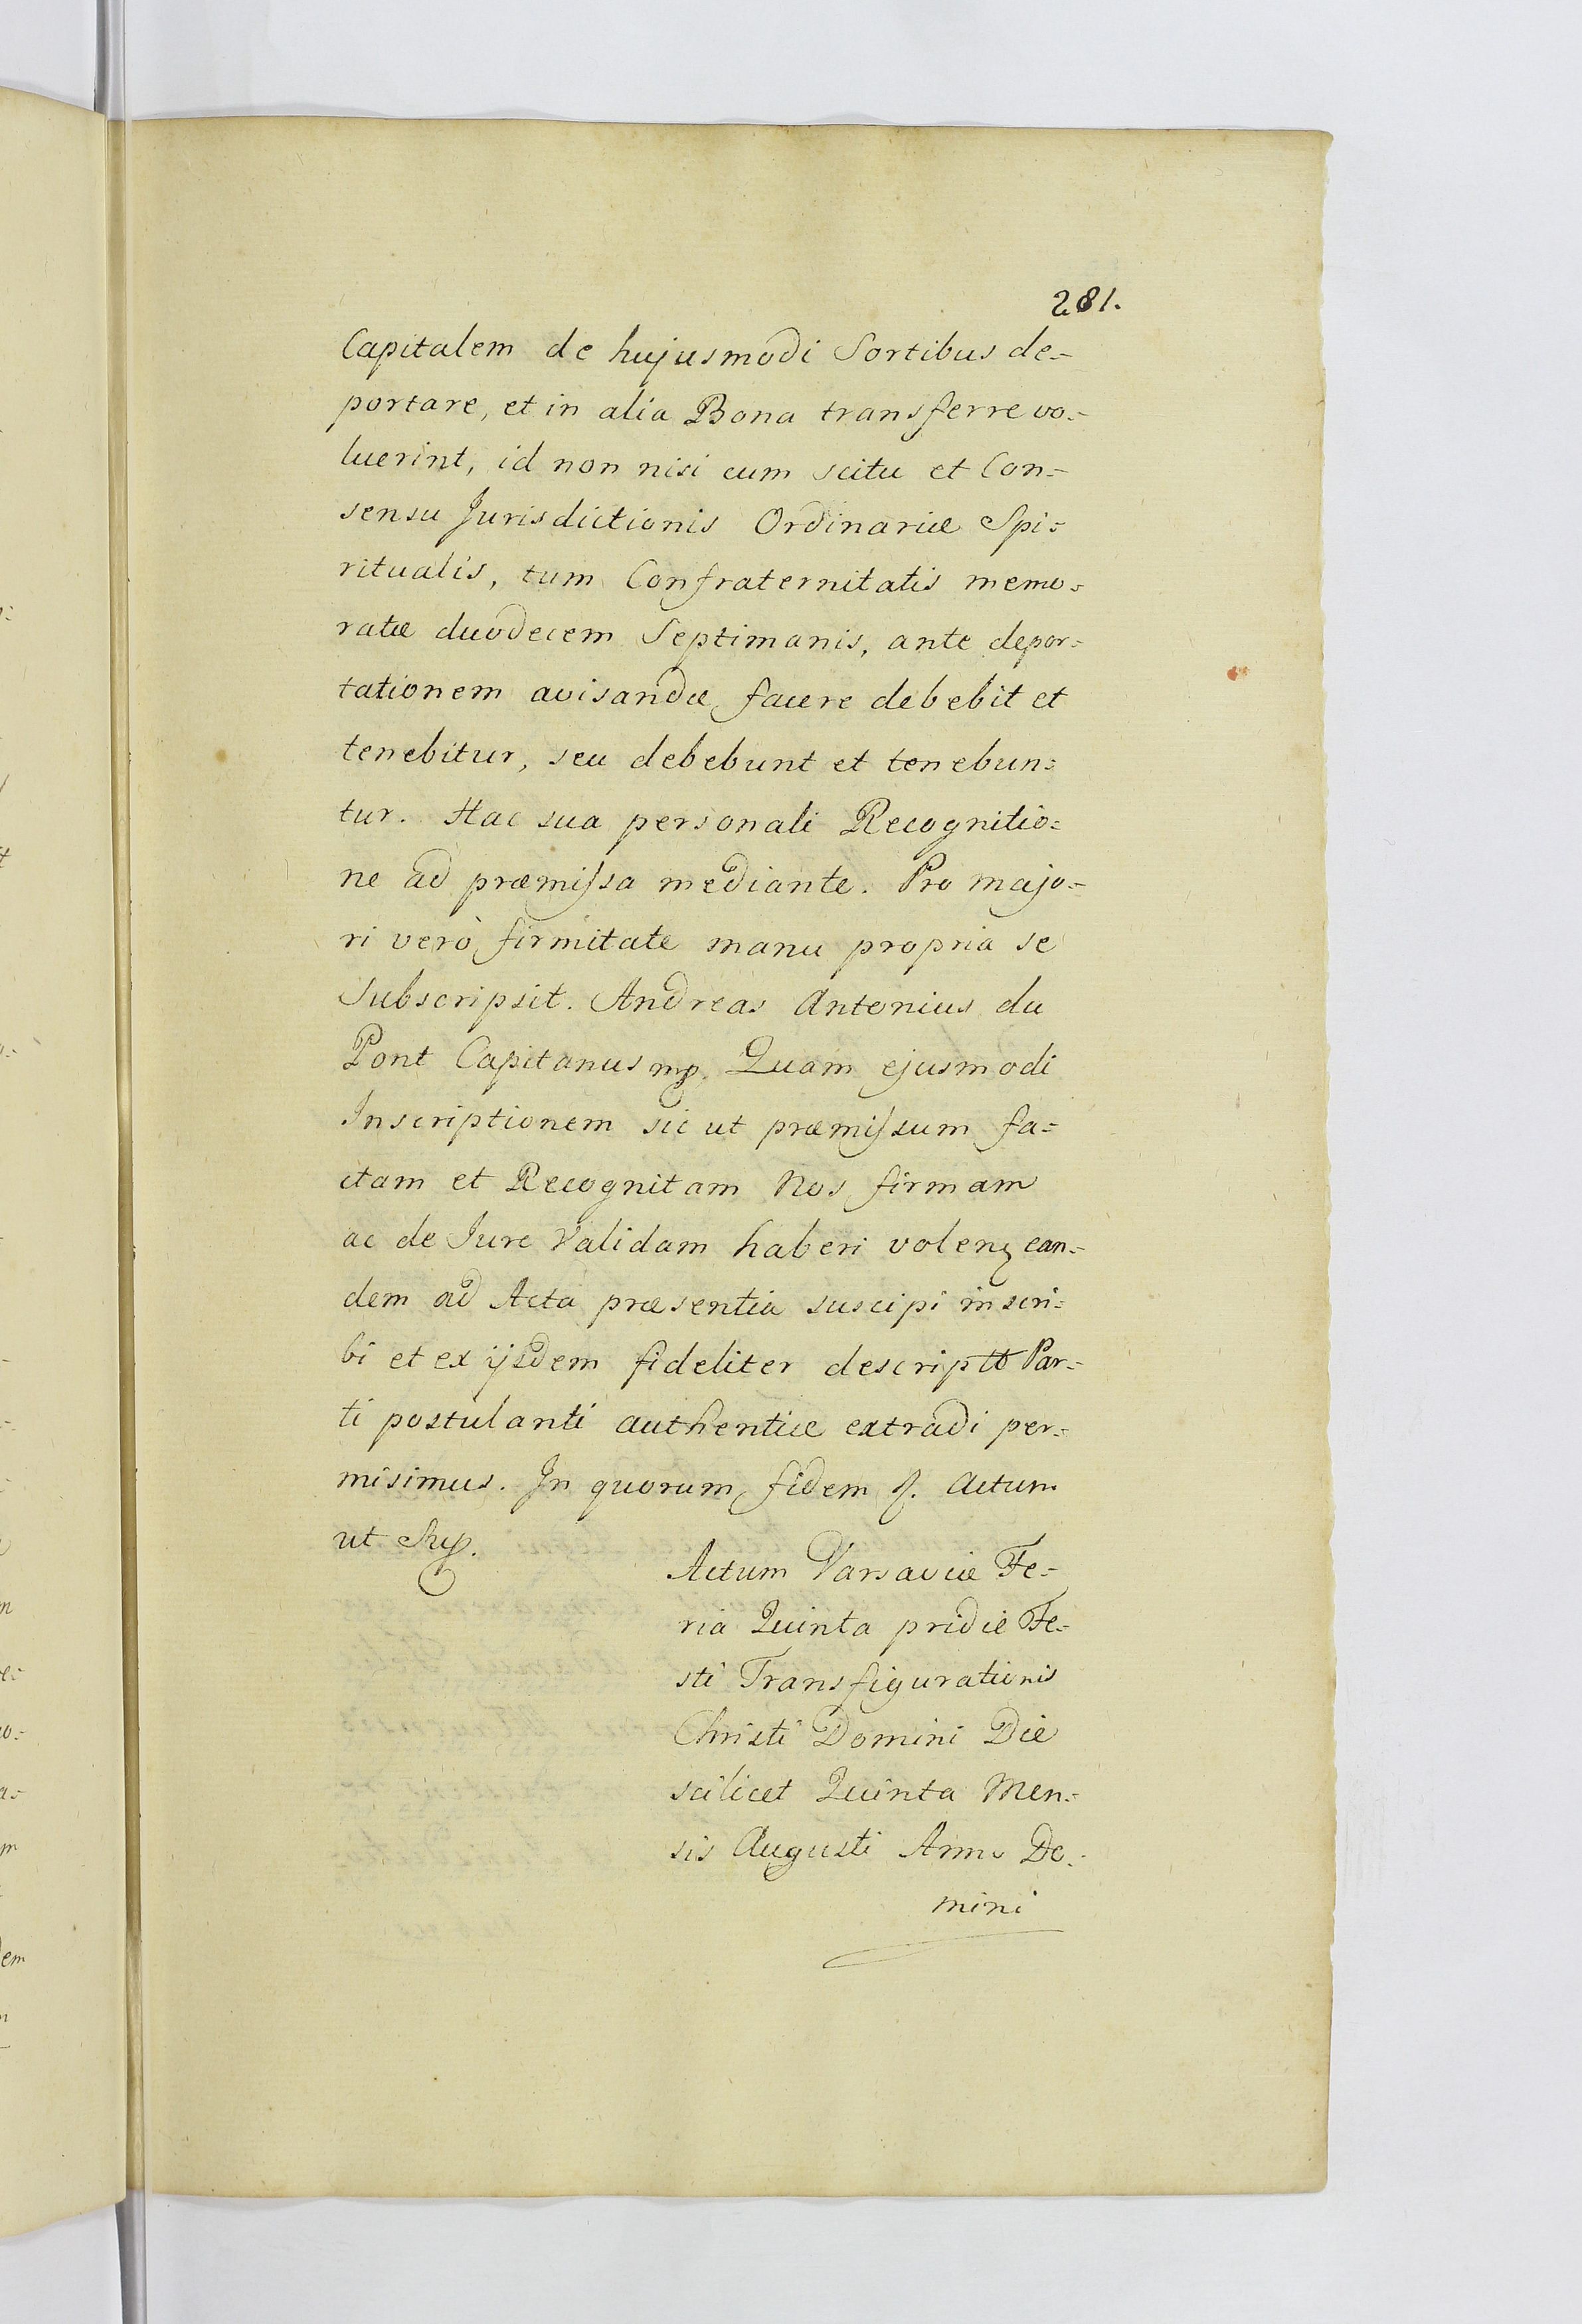 281.
Capitalem de hujusmodi Sortibus de=
portare, et in alia Bona transferre vo=
luerint, id non nisi cum scitu et Con=
sensu Jurisdictionis Ordinariæ Spi=
ritualis, tum Confraternitatis memo=
ratæ duodecem Septimanis, ante depor=
tationem avisandæ facere debebit et
tenebitur, seu debebunt et tenebun=
tur. Hac sua personali Recognitio=
ne ad præmissa mediante. Pro majo=
ri verò firmitate manu propria se
Subscripsit. Andreas Antonius du
Pont Capitanus mp. Quam ejusmodi
Inscriptionem sic ut præmissum fa=
ctam et Recognitam Nos firmam
ac de Jure Validam haberi volentes ean=
dem ad Acta præsentia suscipi inscri=
bi et ex ijsdem fideliter descripto Par=
ti postulanti authentice extradi per=
misimus. In quorum fidem Actum
ut Sup.
Actum Varsaviæ Fe=
ria Quinta pridie Fe=
sti Transfigurationis
Christi Domini Die
scilicet Quinta Men=
sis Augusti Anno Do=
mini